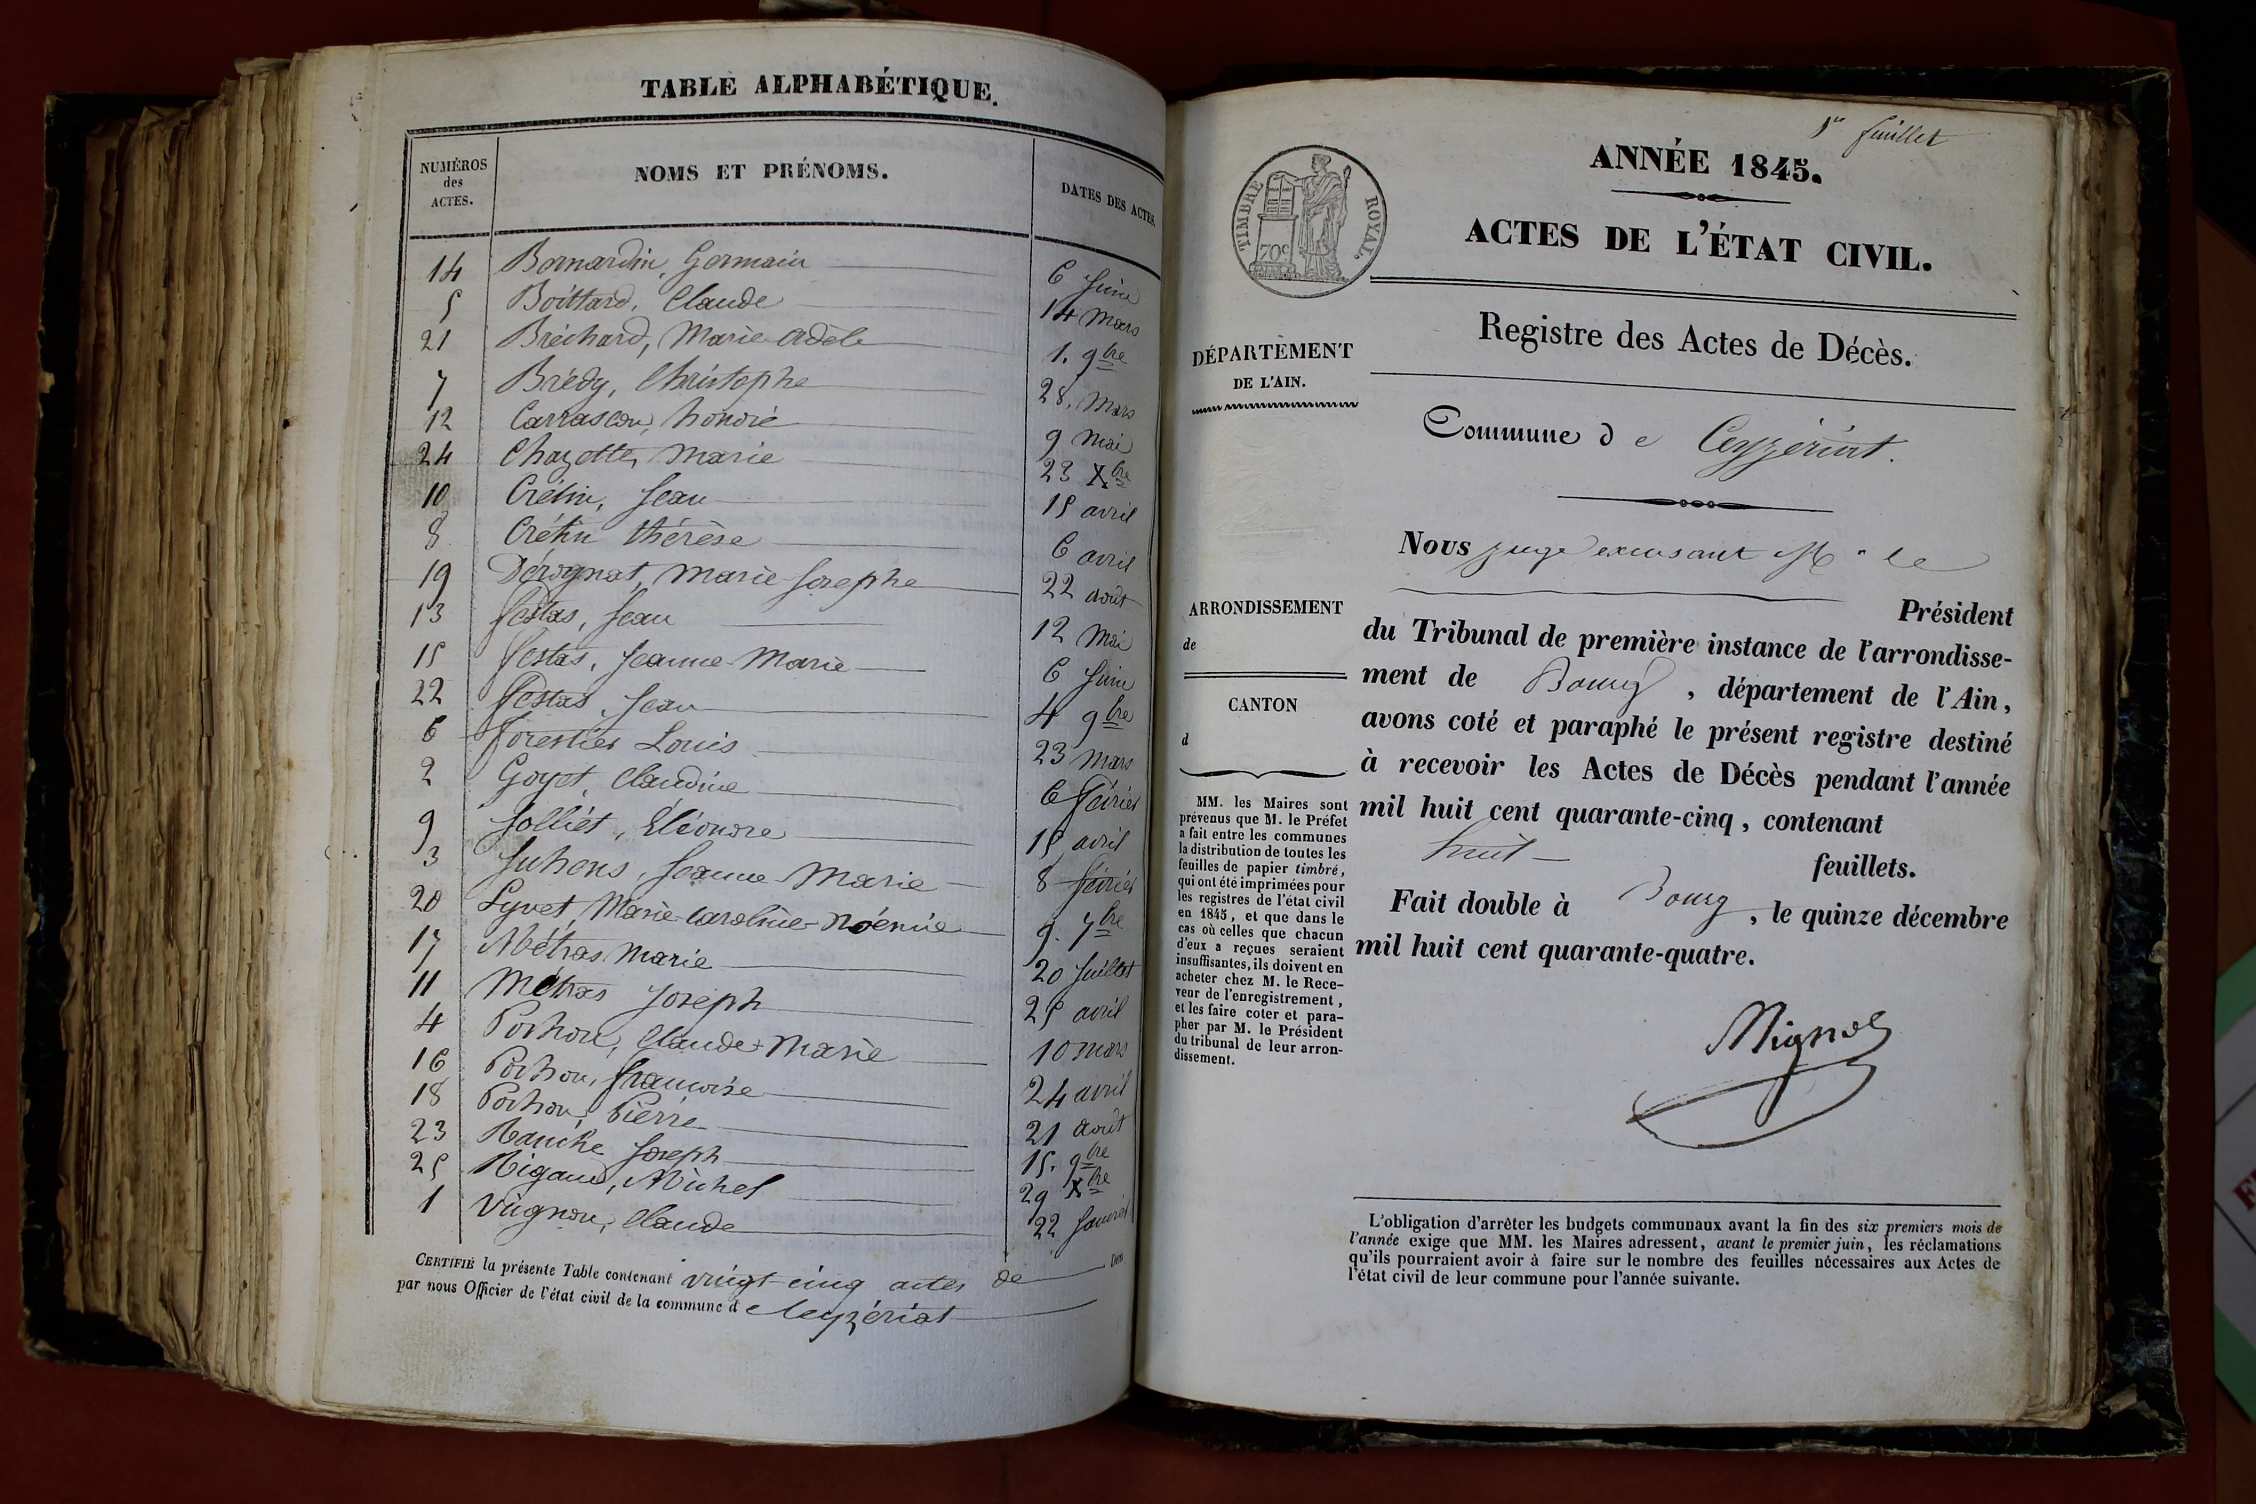 TABLE ALPHABÉTIQUE.
NUMÉROS des ACTES. NOMS ET PRÉNOMS. DATES DES ACTES.
14 Bernardin, Germain 6 Juin
5 Boittard, Claude 14 Mars
21 Bréchard, Marie Adèle 1. 9bre
7 Brédy, Christophe 28. Mars
12 Carrascou, honoré 9 Mai
24 Chazette, Marie 23 Xbre
10 Crétin, Jean 15 avril
8 Crétin thérèse 6 avril
19 Dérognat, Marie Josephe 22 août
13 festas, Jean 12 Mai
15 festas, Jeanne-Marie 6 Juin
22 festas, Jean 4 9bre
6 forestier Louis 23 Mars
2 Goyet, Claudine 6 février
9 Jolliet, Eléonore 15 avril
3 Juhens, Jeanne Marie 8 février
20 Lyvet, Marie-Caroline-Noémie 9. 7bre
17 Métras Marie 20 Juillet
11 Métras Joseph 25 avril
4 Pochon, Claude-Marie 10 mars
16 Pochon, françoise 24 avril
18 Pochon, Pierre 21 août
23 Ranche Joseph 15. 9bre
25 Rigaud, Michel 29 Xbre
1 Vugnon, Claude 22 Janvier
CERTIFIÉ la présente Table contenant vingt-cinq actes de
par nous Officier de l'état civil de la commune de Ceyzériat
1er feuillet
ANNÉE 1845.
TIMBRE ROYAL.
70c
ACTES DE L'ÉTAT CIVIL.
Registre des Actes de Décès.
DÉPARTEMENT
DE L'AIN.
Commune de Ceyzériat.
Nous juge excusant Mr le
Président
ARRONDISSEMENT
de
CANTON
d
du Tribunal de première instance de l'arrondisse-
ment de Bourg, département de l'Ain,
avons coté et paraphé le présent registre destiné
à recevoir les Actes de Décès pendant l'année
mil huit cent quarante-cinq, contenant
huit feuillets.
Fait double à Bourg, le quinze décembre
mil huit cent quarante-quatre.
MM. les Maires sont
prévenus que M. le Préfet
a fait entre les communes
la distribution de toutes les
feuilles de papier timbré,
qui ont été imprimées pour
les registres de l'état civil
en 1845, et que dans le
cas où celles que chacun
d'eux a reçues seraient
insuffisantes, ils doivent en
acheter chez M. le Rece-
veur de l'enregistrement,
et les faire coter et para-
pher par M. le Président
du tribunal de leur arron-
dissement.
Mignot
L'obligation d'arrêter les budgets communaux avant la fin des six premiers mois de
l'année exige que MM. les Maires adressent, avant le premier juin, les réclamations
qu'ils pourraient avoir à faire sur le nombre des feuilles nécessaires aux Actes de
l'état civil de leur commune pour l'année suivante.